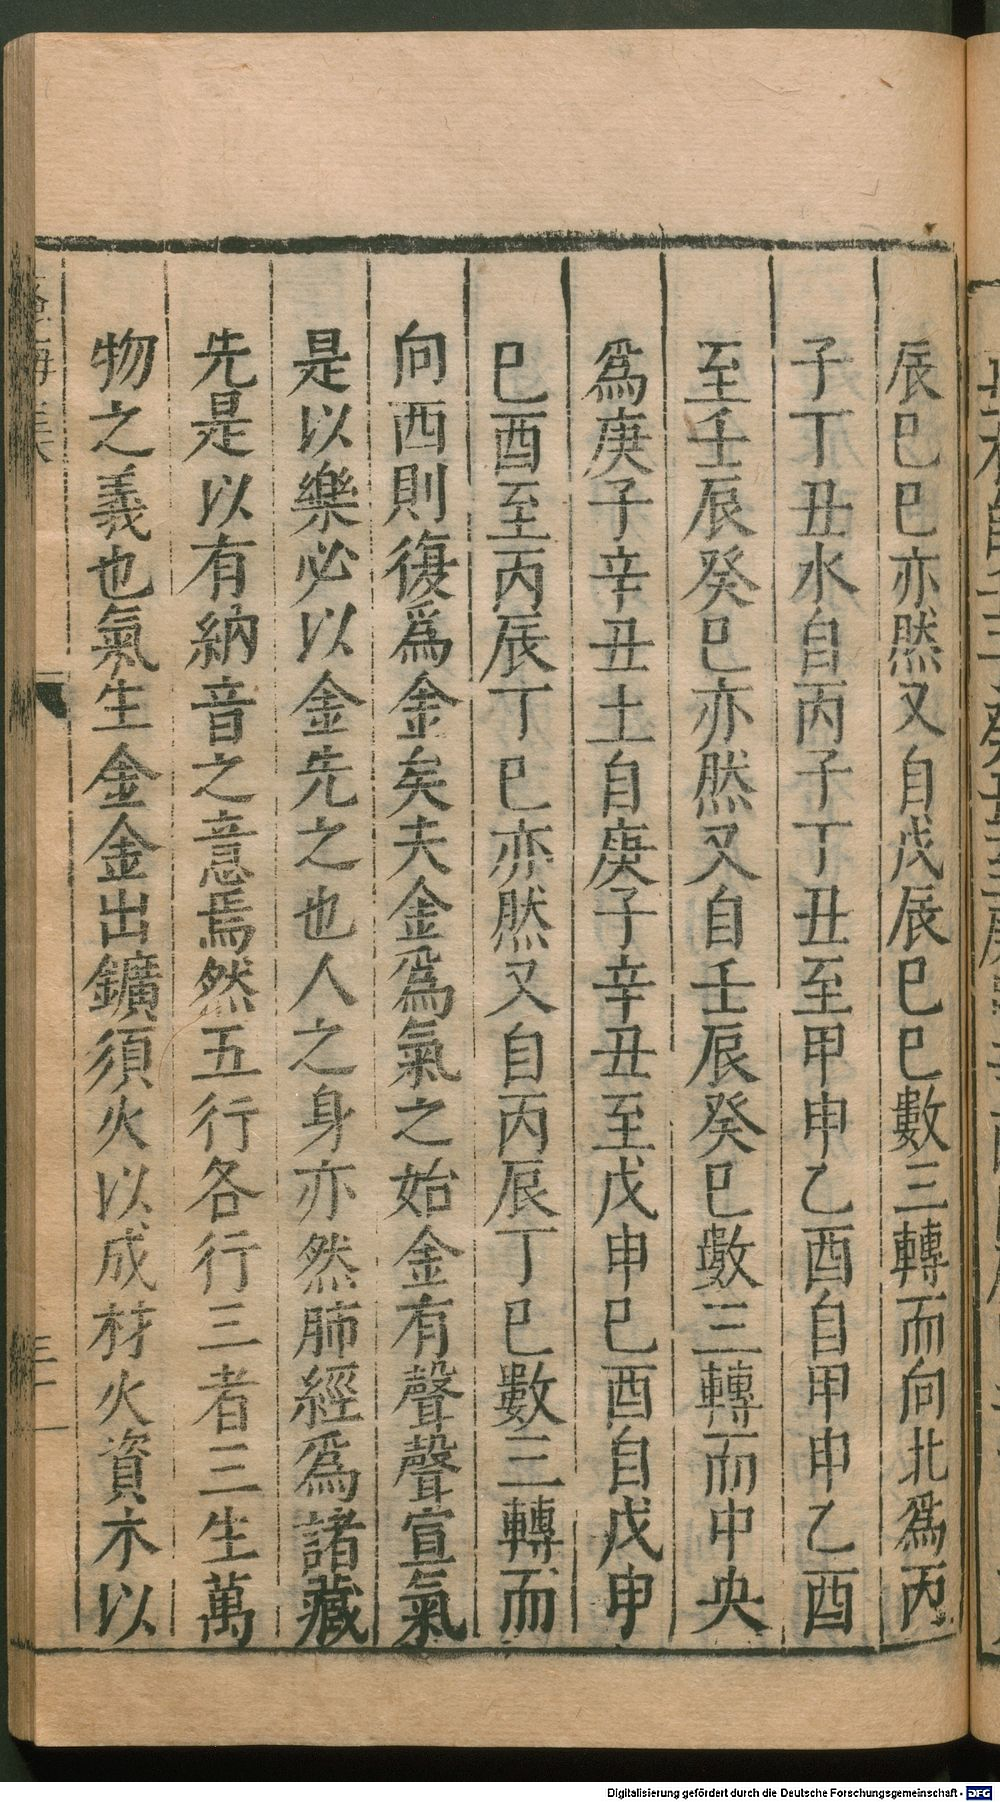 辰巳巳亦然又自戊辰巳巳數三轉而向北爲丙
子丁丑水自丙子丁丑至甲申乙酉自甲申乙酉
至壬辰癸巳亦然又自壬辰癸巳數三轉而中央
爲庚子辛丑土自庚子辛丑至戊申巳酉自戊申
巳酉至丙辰丁巳亦然又自丙辰丁巳數三轉而
向西則復爲金矣夫金爲氣之始金有聲聲宣氣
是以樂必以金先之也人之身亦然肺經爲諸藏
先是以有納音之意焉然五行各行三者三生萬
物之義也氣生金金出鑛須火以成材火資木以
Digitalisierung gefördert durch die Deutsche Forschungsgemeinschaft - DFG